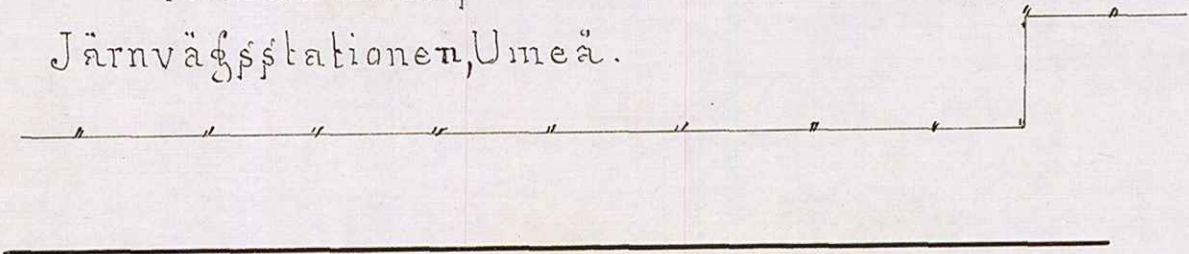 Järnvägsstationen, Umeå.